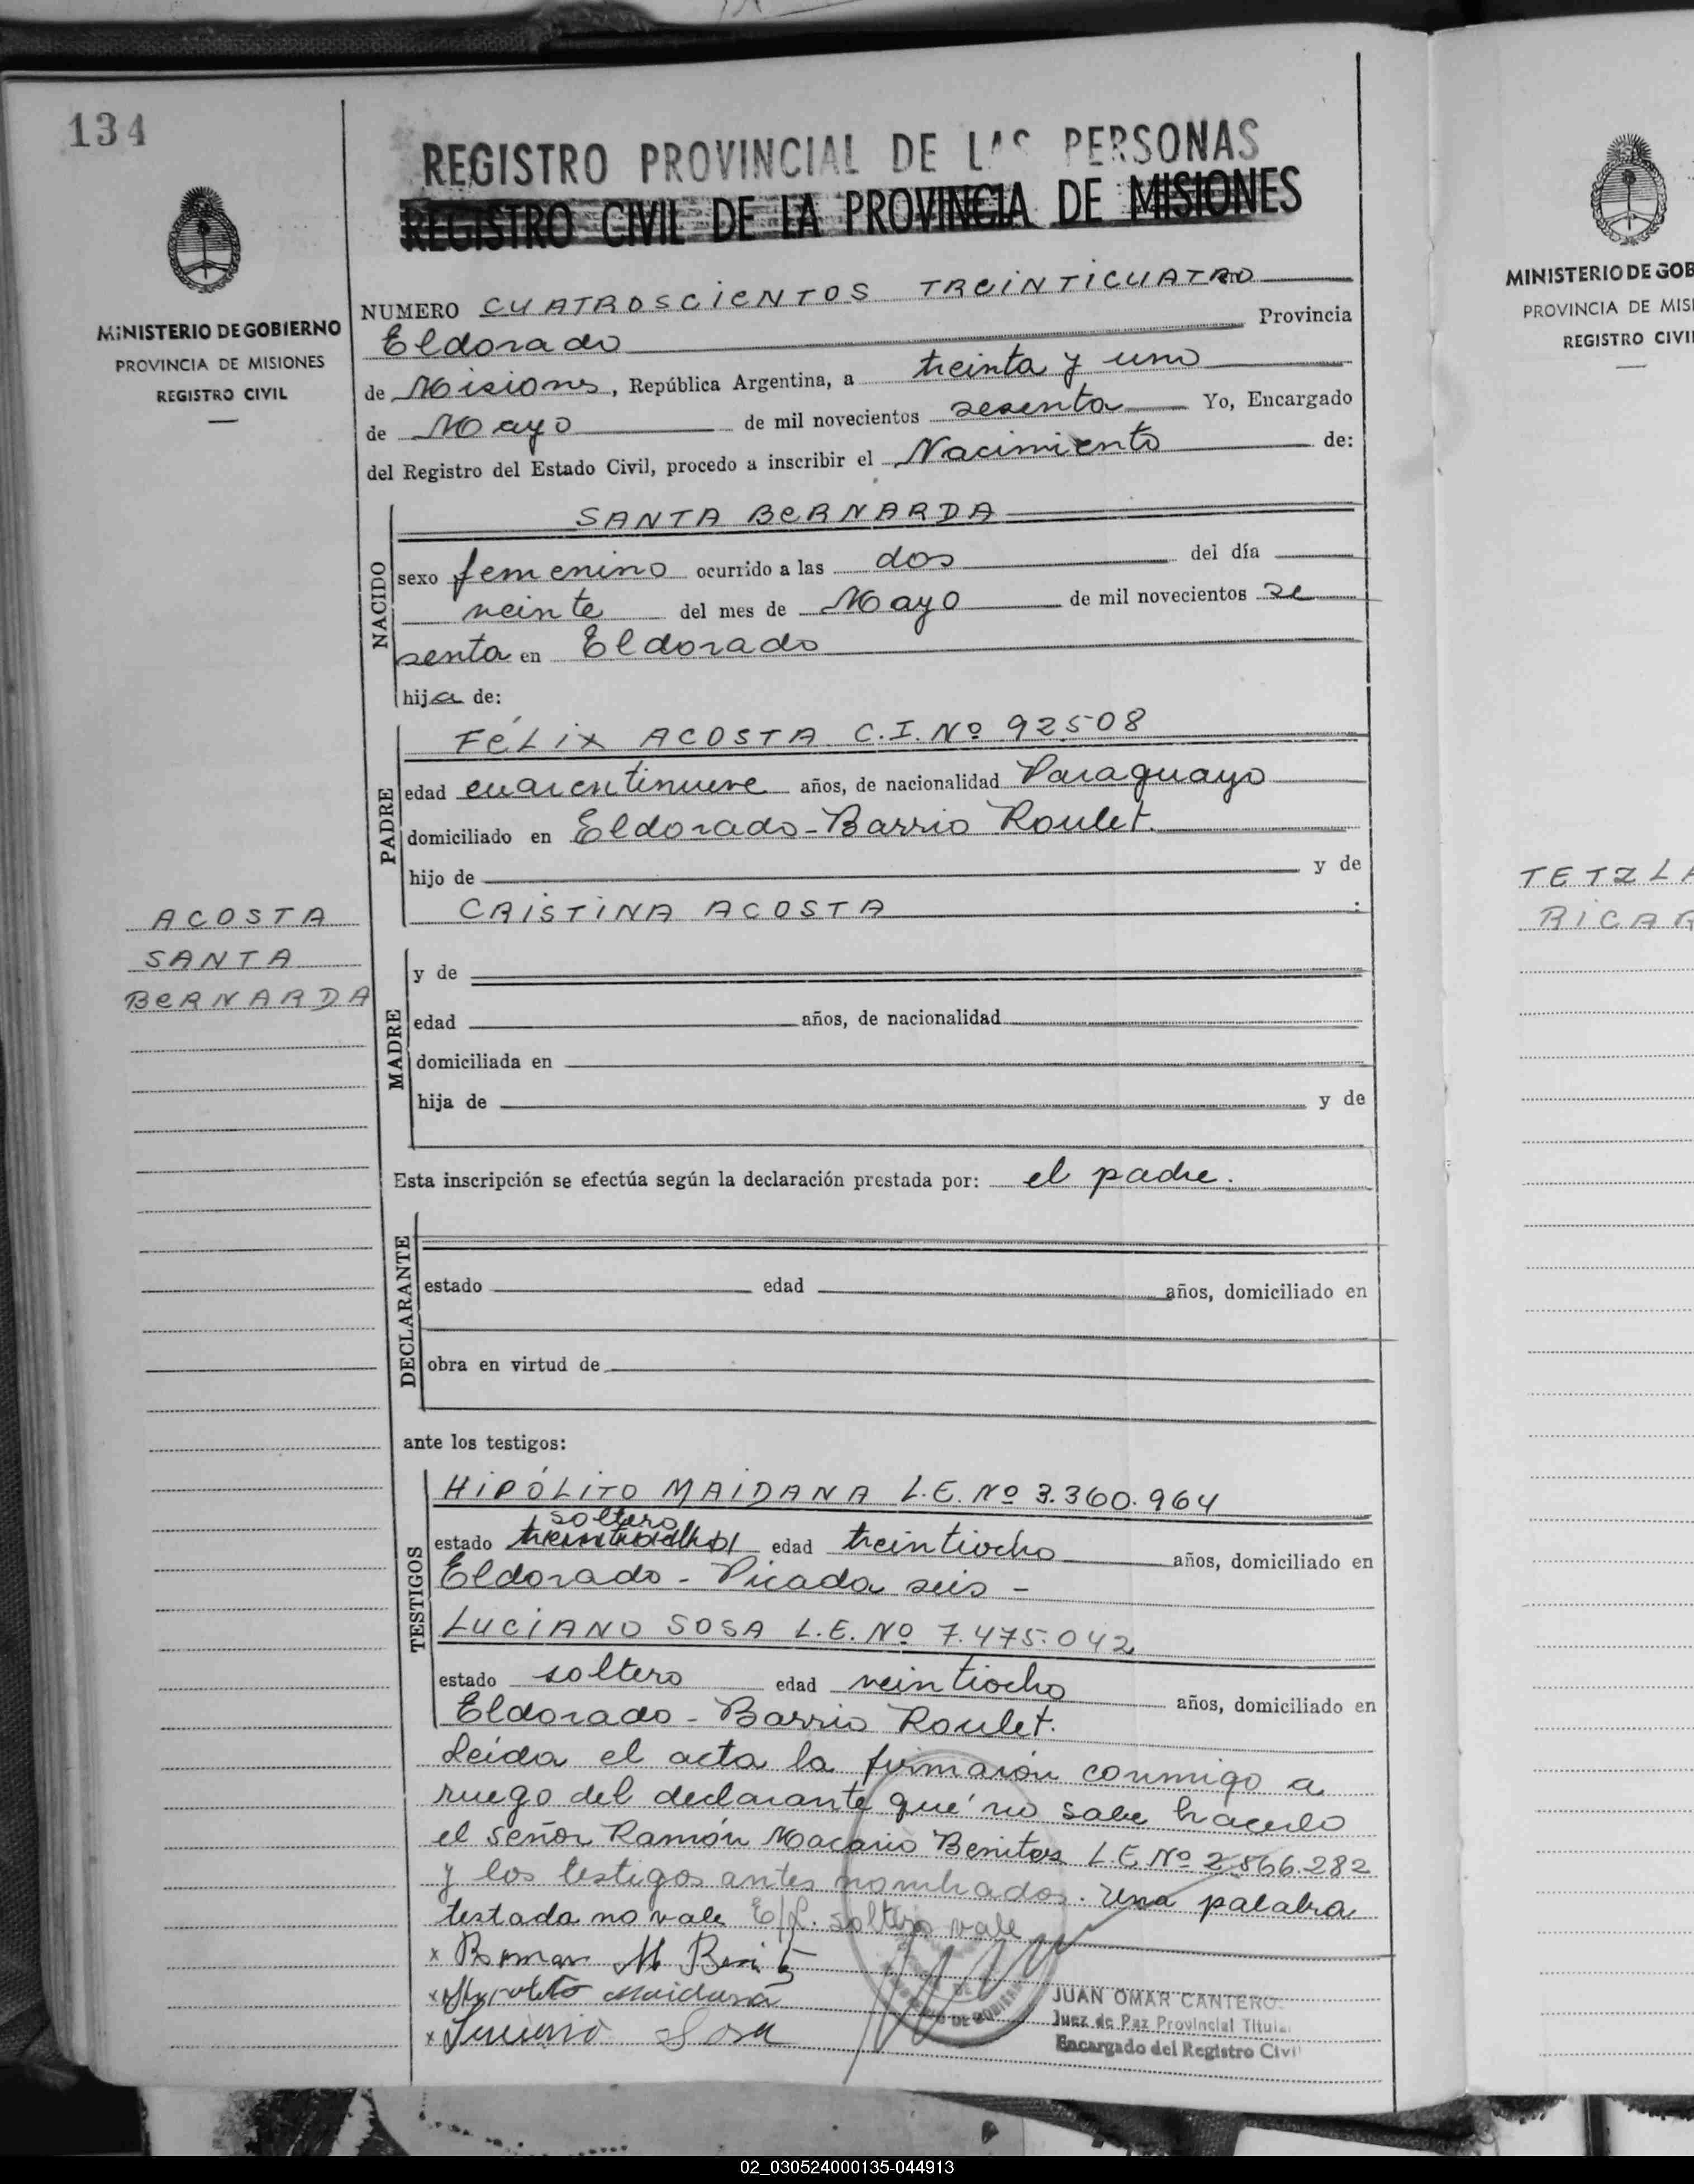 134
MINISTERIO DE GOBIERNO
PROVINCIA DE MISIONES
REGISTRO CIVIL
ACOSTA
SANTA
BERNARDA
REGISTRO PROVINCIAL DE LAS PERSONAS
REGISTRO CIVIL DE LA PROVINCIA DE MISIONES
NUMERO CUATROSCIENTOS TREINTICUATRO
Eldorado Provincia
de Misiones, República Argentina, a treinta y uno
de Mayo de mil novecientos sesenta Yo, Encargado
del Registro del Estado Civil, procedo a inscribir el Nacimiento de:
NACIDO
SANTA BERNARDA
sexo femenino ocurrido a las dos del día
veinte del mes de Mayo de mil novecientos se
senta en Eldorado
hija de:
PADRE
FÉLIX ACOSTA C.I. Nº 92508
edad cuarentinueve años, de nacionalidad Paraguayo
domiciliado en Eldorado-Barrio Roulet.
hijo de y de
CRISTINA ACOSTA :
MADRE
y de
edad años, de nacionalidad
domiciliada en
hija de y de
Esta inscripción se efectúa según la declaración prestada por: el padre.
DECLARANTE
estado edad años, domiciliado en
obra en virtud de
ante los testigos:
TESTIGOS
HIPÓLITO MAIDANA L.E. Nº 3.360.964
soltero
estado edad treintiocho años, domiciliado en
Eldorado - Picada seis -
LUCIANO SOSA L.E. Nº 7.475.042
estado soltero edad veintiocho años, domiciliado en
Eldorado - Barrio Roulet.
Leída el acta la firmaron conmigo a
ruego del declarante que no sabe hacerlo
el señor Ramón Macario Benites L.E. Nº 2.566.282
y los testigos antes nombrados. Una palabra
testada no vale E/L. soltero vale
x Roman M Beni
x Hipolito Maidana
x Luciano Sosa
JUAN OMAR CANTERO
Juez de Paz Provincial Titular
Encargado del Registro Civil
MINISTERIO DE GOB
PROVINCIA DE MISI
REGISTRO CIVI
TETZLA
RICAR
02_030524000135-044913